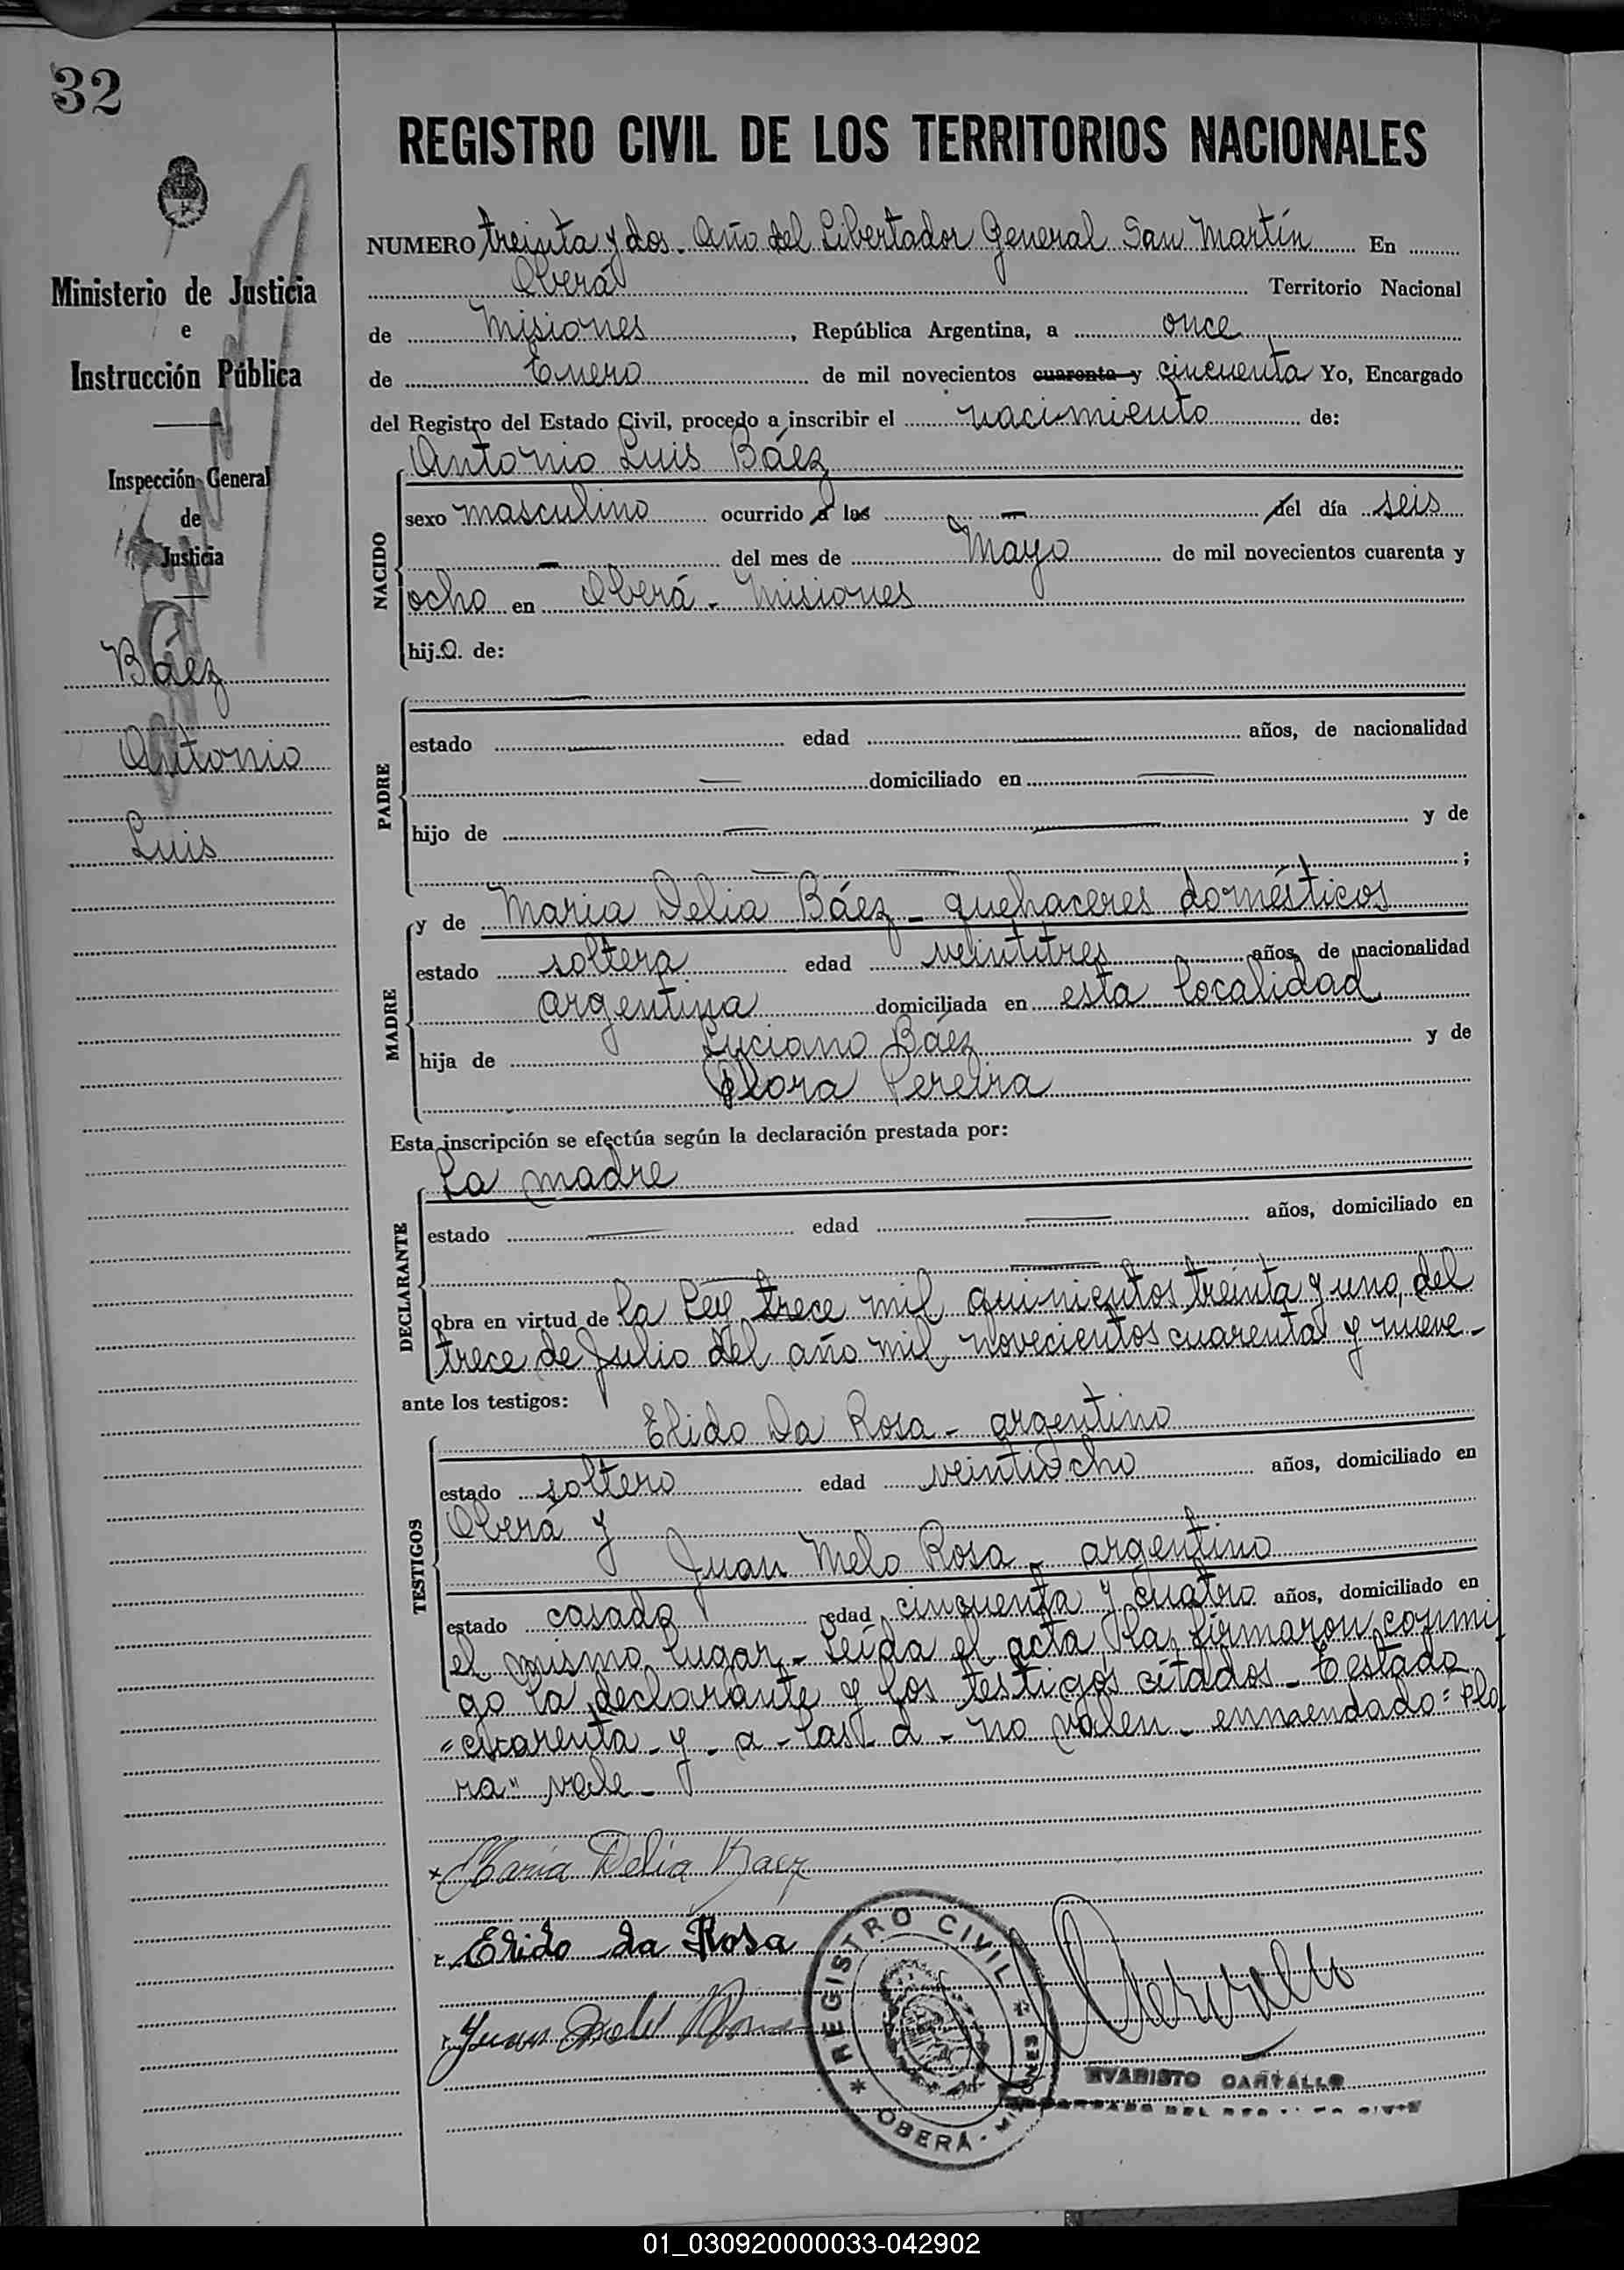 32
REGISTRO CIVIL DE LOS TERRITORIOS NACIONALES
NUMERO treinta y dos. Año del Libertador General San Martín En
Oberá Territorio Nacional
de Misiones, República Argentina, a once
de Enero de mil novecientos cuarenta y cincuenta Yo, Encargado
del Registro del Estado Civil, procedo a inscribir el nacimiento de:
Antonio Luis Báez
NACIDO
sexo masculino ocurrido a las — del día seis
— del mes de Mayo de mil novecientos cuarenta y
ocho en Oberá - Misiones
hijo de:
PADRE
—
estado — edad — años, de nacionalidad
— domiciliado en —
hijo de — — y de
— — ;
MADRE
y de Maria Delia Báez - quehaceres domésticos
estado soltera edad veintitres años, de nacionalidad
argentina domiciliada en esta localidad
hija de Luciano Báez y de
Flora Pereira
Esta inscripción se efectúa según la declaración prestada por:
DECLARANTE
La madre
estado — edad — años, domiciliado en
— —
obra en virtud de la Ley trece mil quinientos treinta y uno, del
trece de Julio del año mil novecientos cuarenta y nueve -
ante los testigos:
TESTIGOS
Elido Da Rosa - argentino
estado soltero edad veintiocho años, domiciliado en
Oberá y
Juan Melo Rosa - argentino
estado casado edad cincuenta y cuatro años, domiciliado en
el mismo lugar - Leída el acta, la firmaron conmi
go la declarante y los testigos citados - Testado
"cuarenta - y - a - las - d - no valen - enmendado: "Flo
ra" vale -
Maria Delia Baez
Elido da Rosa
Juan Melo Rosa
REGISTRO CIVIL
OBERÁ - MISIONES
EVARISTO CARVALLO
ENCARGADO DEL REGISTRO CIVIL
Ministerio de Justicia
e
Instrucción Pública
Inspección General
de
Justicia
Báez
Antonio
Luis
01_030920000033-042902